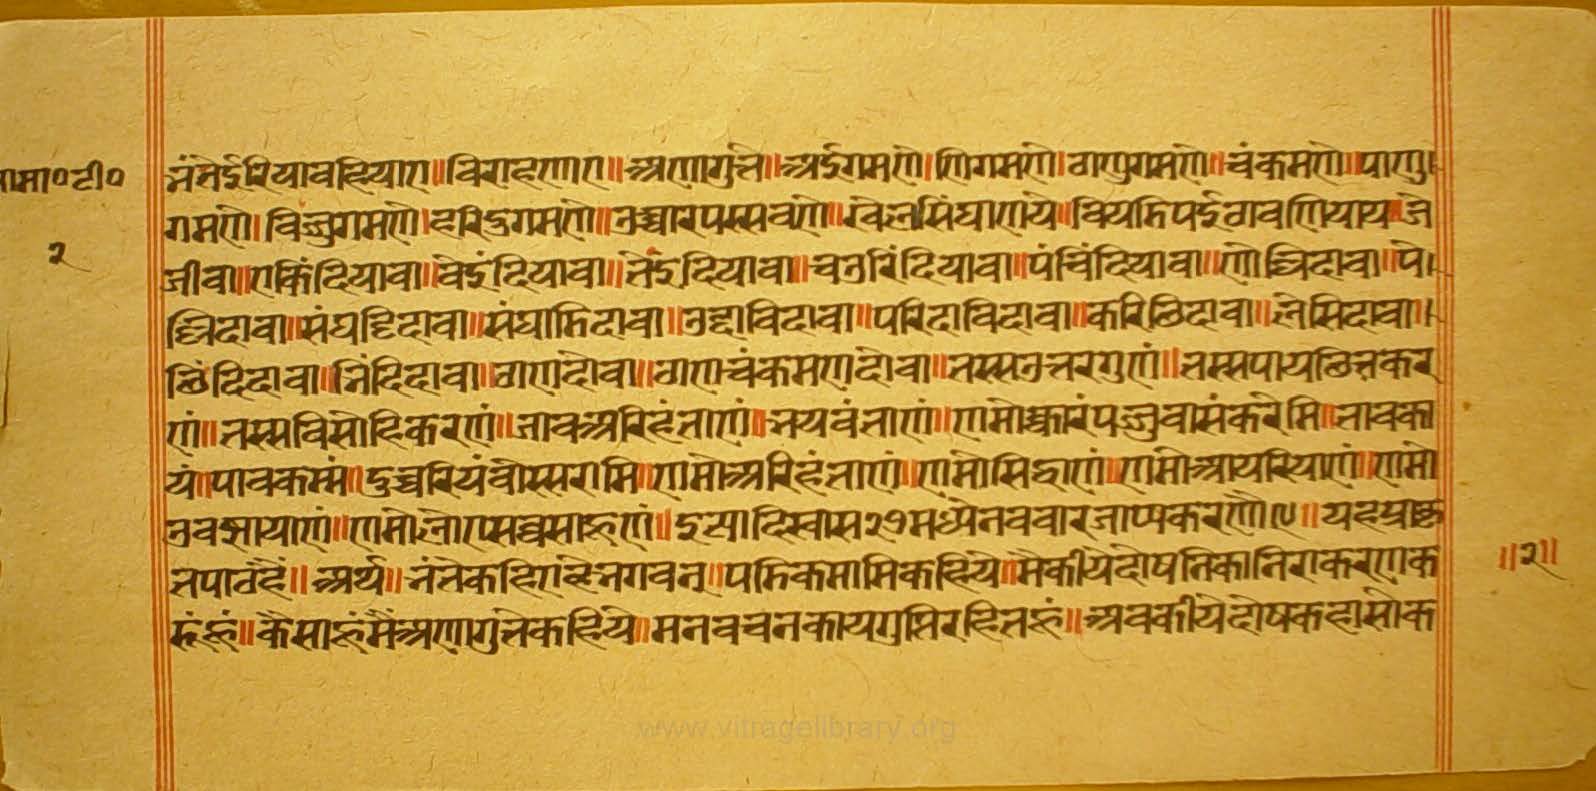 सामा॰टी॰
२
नंतेईरियावहियाए॥विराहणाए॥अणागुत्ते॥अईगमणे।णिगमणे।ठाणुगमणे॥चंकमणे॥पाणु।
गमणे।विज्जुगमणे।हरिदुगमणे॥उच्चारपस्सवणे॥खेलसिंघाणये॥वियतिपईठावणियाय॥जे
जीवा॥एकिंदियावा॥बेइंदियावा॥तेइंदियावा॥चउरिंदियावा॥पंचिंदियावा॥णोल्लिदावा॥पे।
ल्लिदावा॥संघट्टिदावा॥संघातिदावा॥उद्दाविदावा॥परिदाविदावा॥करिछिदावा॥लेसिदावा।
छिंदिदावा॥भिंदिदावा॥ठाणंदोवा॥ठाणचंकमणदोवा॥तस्सउत्तरगुणं॥तस्सपायछित्तकर
णं॥तस्सविसोहिकरणं॥जावअरिहंताणं॥भयवंताणं॥णमोक्कारंपज्जुवासंकरेमि॥तावका
यं॥पावकम्मं॥दुच्चरियंवोस्सरामि॥णमोअरिहंताणं॥णमोसिद्धाणं॥णमोआयरियाणं॥णमो
उवझायाणं॥णमोलोएसव्वसाहूणं॥इत्यादिस्वास२७मध्येनववारजाप्यकरणौ९॥यह
तपाठहै॥अर्थ॥नंतेकहिएहेभगवन्॥पतिकमामिकहिये॥मैकीयदोषतिकानिराकरणक
रूंहूं॥कैसाहूंमैंअणागुतेकहिये॥मनवचनकायगुप्तिरहितहूं॥अवकीयेदोषकहासोक
॥२॥
www.vitragelibrary.org